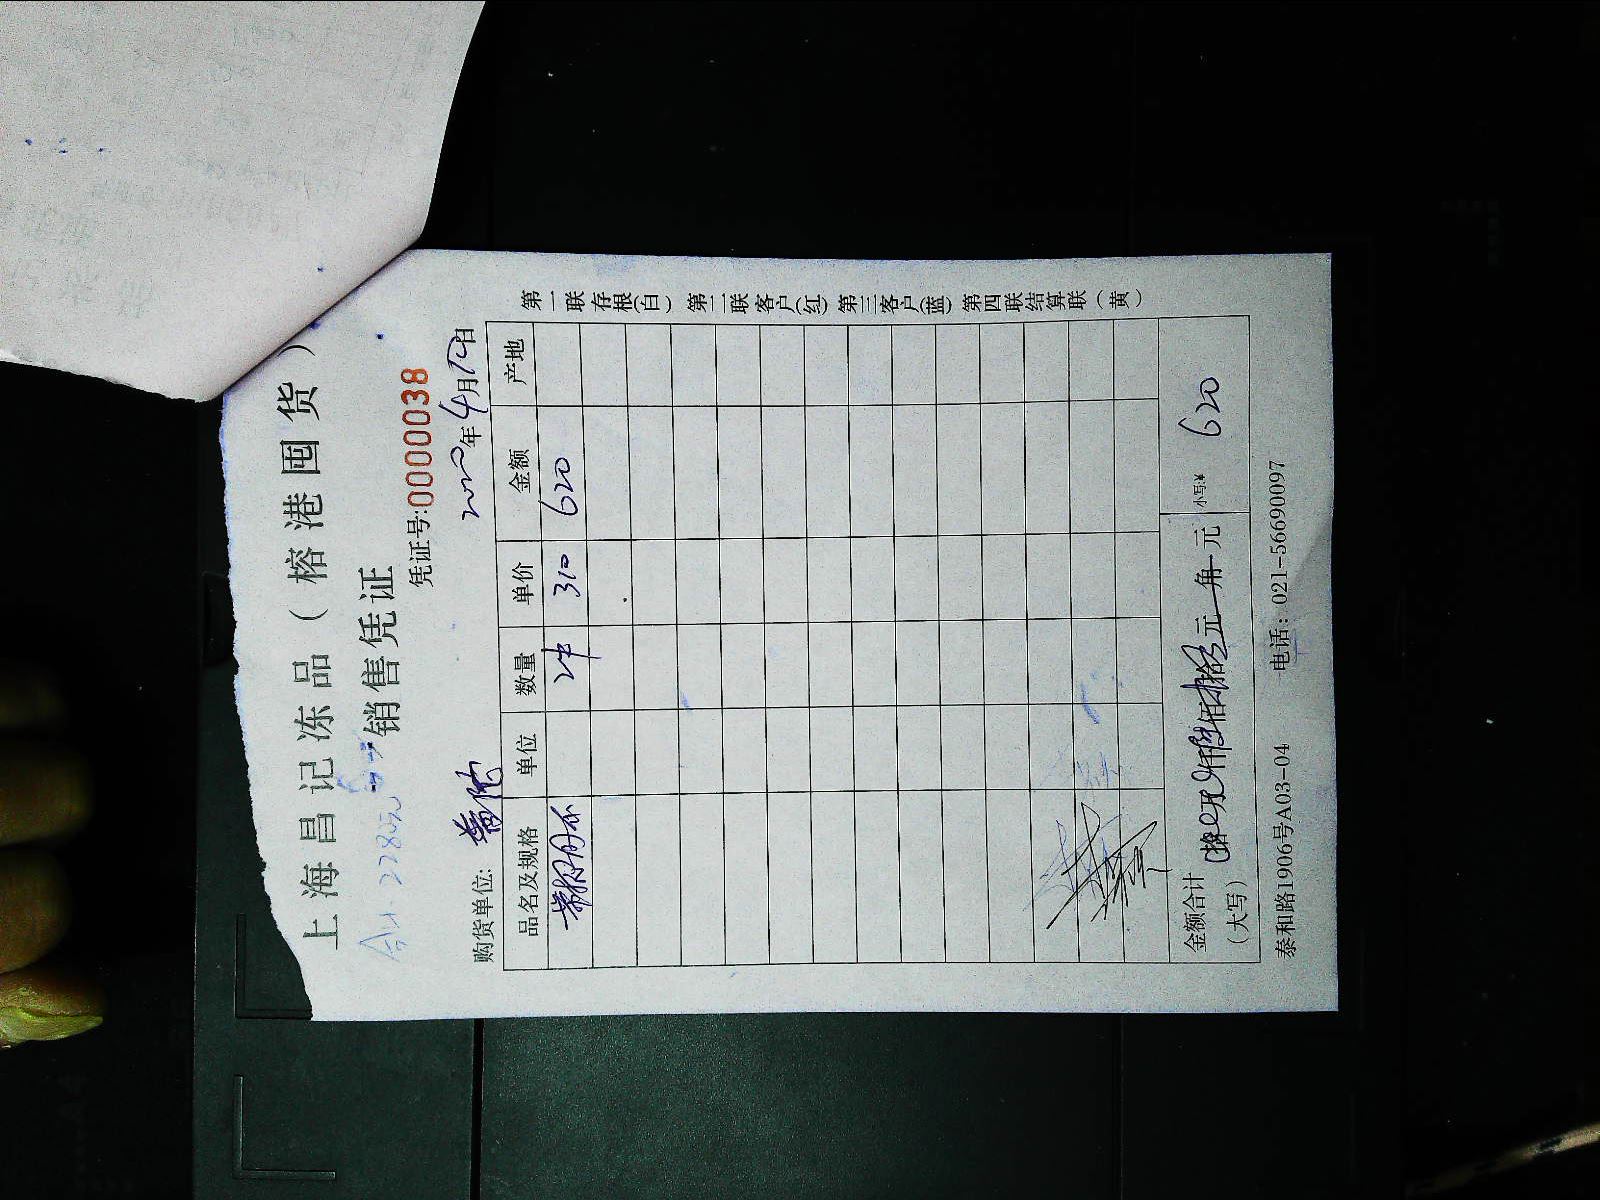 上海昌记冻品（榕港囤货）
销售凭证
凭证号:0000038
购货单位: 2020年4月12日
品名及规格 单位 数量 单价 金额 产地
2件 310 620
金额合计（大写） 拾 万 仟陆佰贰拾元 角 元 小写:¥ 620
泰和路1906号A03-04 电话: 021-56690097
第一联存根(白) 第二联客户(红) 第三客户(蓝) 第四联结算联(黄)